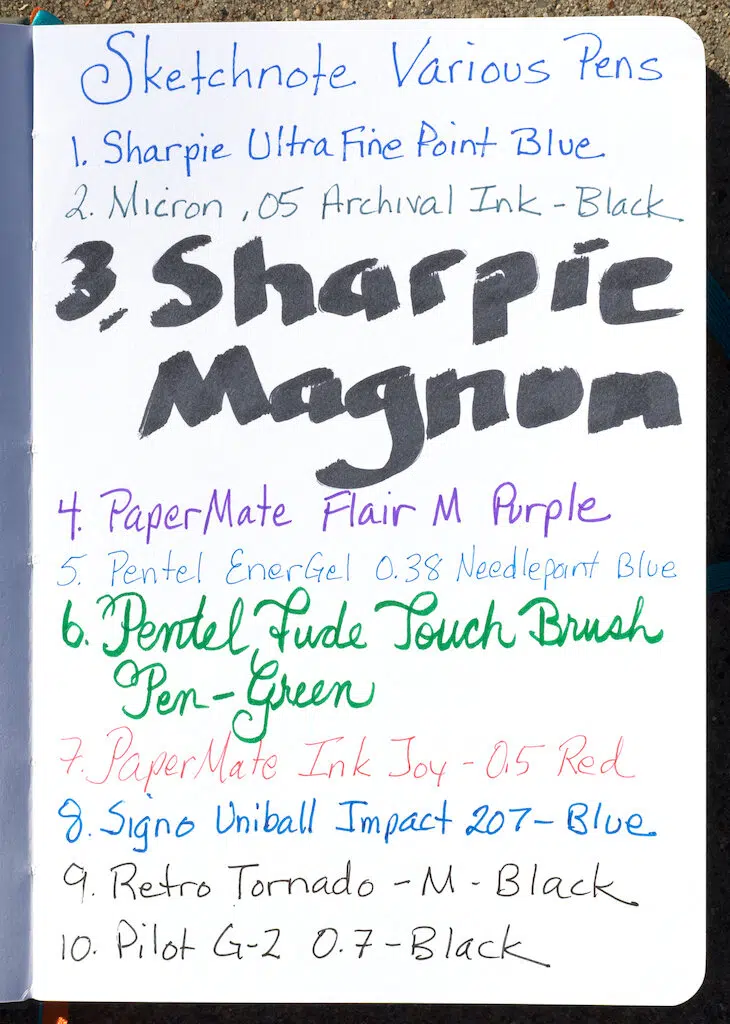 Sketchnote Various Pens
1. Sharpie Ultra Fine Point Blue
2. Micron .05 Archival Ink - Black
3. Sharpie
Magnum
4. PaperMate Flair M Purple
5. Pentel EnerGel 0.38 Needlepoint Blue
6. Pentel Fude Touch Brush
Pen - Green
7. PaperMate Ink Joy - 0.5 Red
8. Signo Uniball Impact 207 - Blue
9. Retro Tornado - M - Black
10. Pilot G-2 0.7 - Black